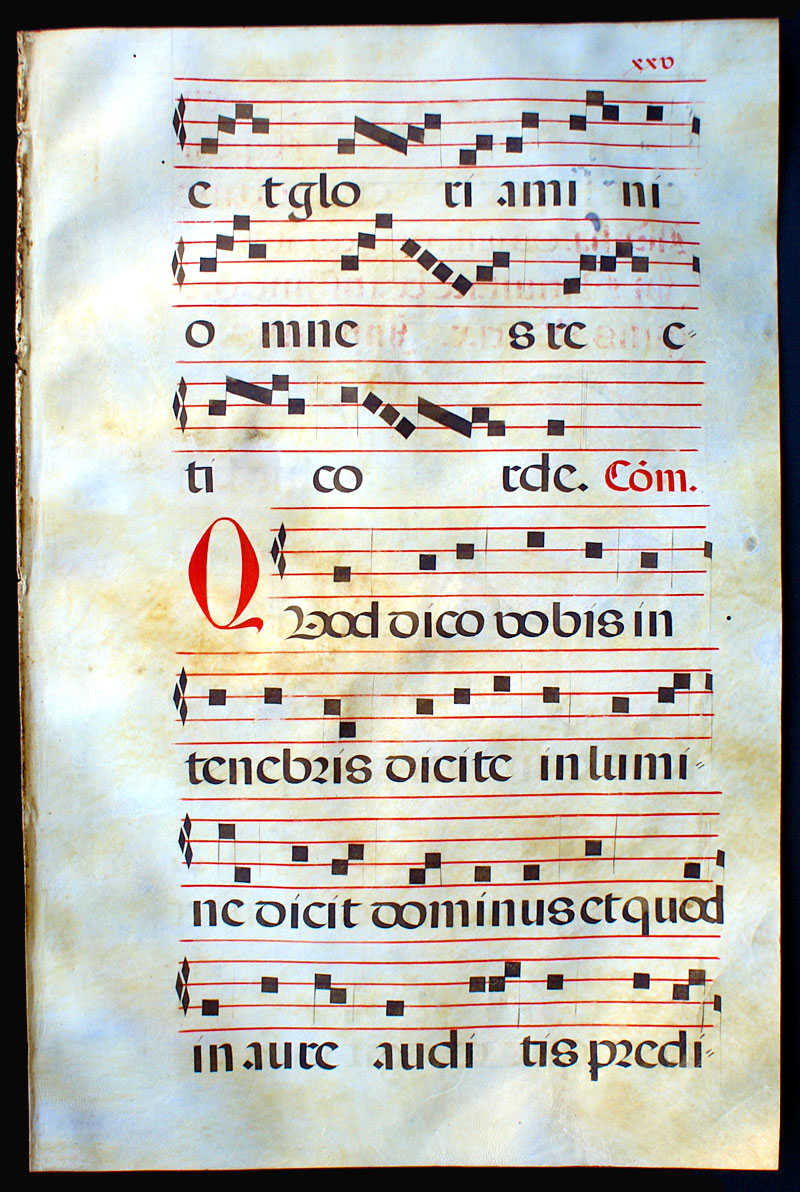 xxv
et gloriamini
omnes rec-
ti corde. Cóm.
Quod dico vobis in
tenebris dicite in lumi-
ne dicit dominus et quod
in aure auditis predi-